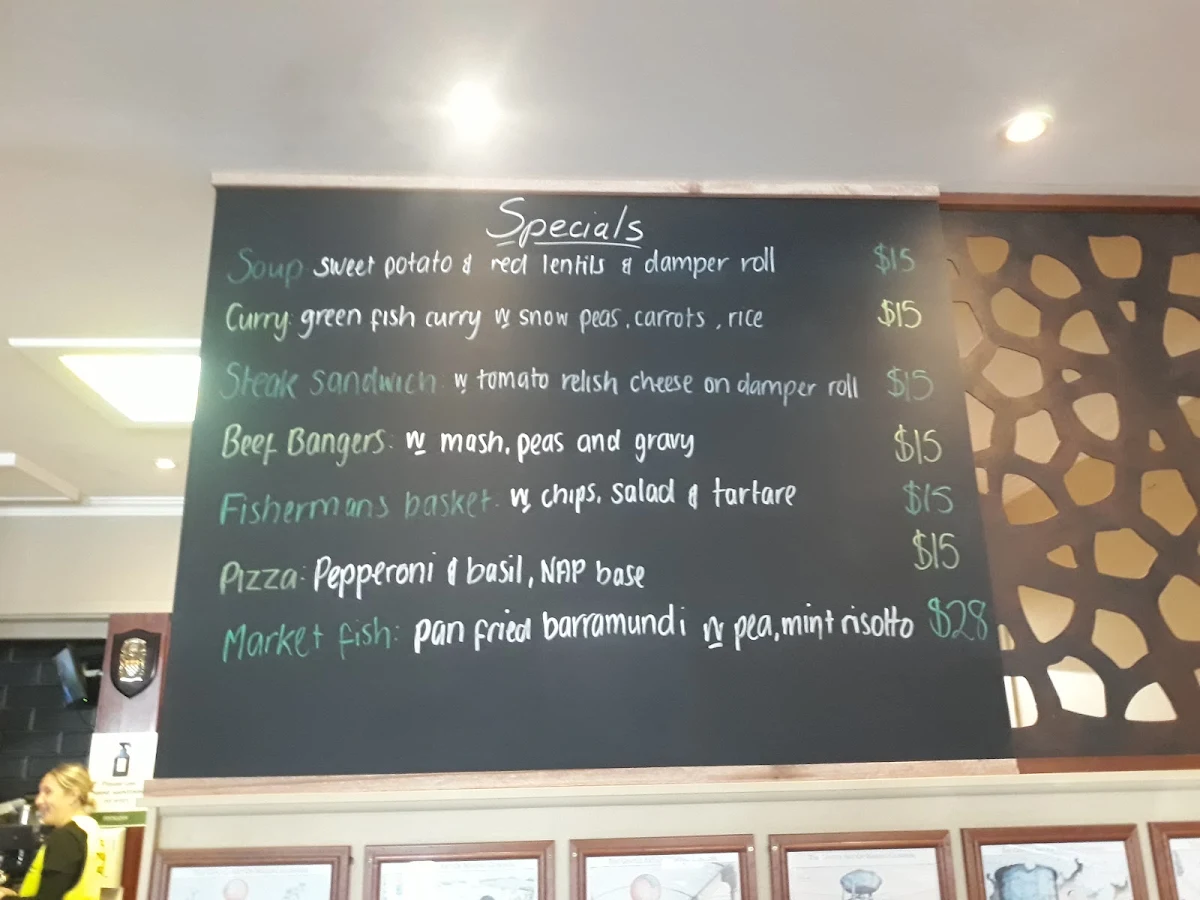 Specials
Soup sweet potato & red lentils & damper roll $15
Curry: green fish curry w snow peas, carrots, rice $15
Steak sandwich: w tomato relish cheese on damper roll $15
Beef Bangers: w mash, peas and gravy $15
Fishermans basket: w chips, salad & tartare $15
Pizza: Pepperoni & basil, NAP base $15
Market fish: pan fried barramundi w pea, mint risotto $28